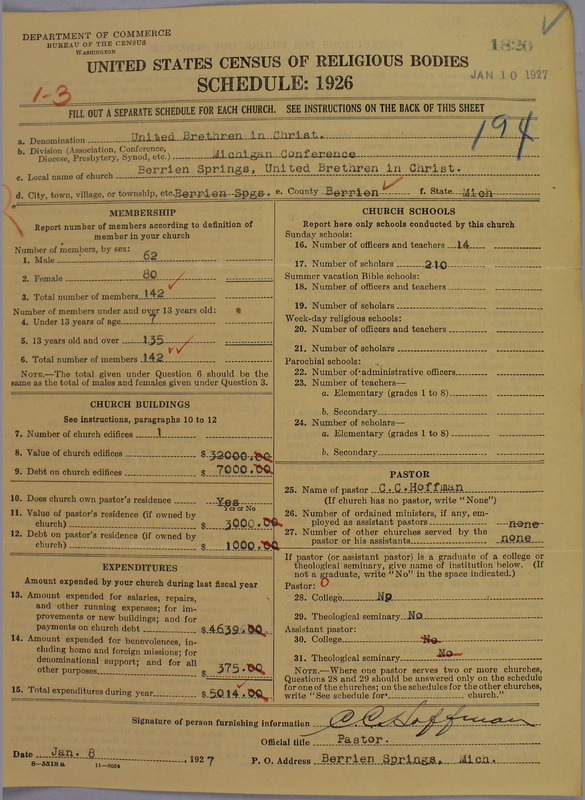 DEPARTMENT OF COMMERCE
BUREAU OF THE CENSUS
WASHINGTON
1820
JAN 10 1927
UNITED STATES CENSUS OF RELIGIOUS BODIES
SCHEDULE: 1926
1-3
FILL OUT A SEPARATE SCHEDULE FOR EACH CHURCH. SEE INSTRUCTIONS ON THE BACK OF THIS SHEET
194
a. Denomination United Brethren in Christ.
b. Division (Association, Conference, Diocese, Presbytery, Synod, etc.) Michigan Conference
c. Local name of church Berrien Springs, United Brethren in Christ.
d. City, town, village, or township, etc. Berrien Spgs. e. County Berrien f. State Mich
MEMBERSHIP
Report number of members according to definition of
member in your church
Number of members, by sex:
1. Male 62
2. Female 80
3. Total number of members 142
Number of members under and over 13 years old:
4. Under 13 years of age 7
5. 13 years old and over 135
6. Total number of members 142
NOTE.—The total given under Question 6 should be the
same as the total of males and females given under Question 3.
CHURCH BUILDINGS
See instructions, paragraphs 10 to 12
7. Number of church edifices 1
8. Value of church edifices $ 32000.00
9. Debt on church edifices $ 7000.00
10. Does church own pastor's residence Yes
Yes or No
11. Value of pastor's residence (if owned by
church) $ 3000.00
12. Debt on pastor's residence (if owned by
church) $ 1000.00
EXPENDITURES
Amount expended by your church during last fiscal year
13. Amount expended for salaries, repairs,
and other running expenses; for im-
provements or new buildings; and for
payments on church debt $ 4639.00
14. Amount expended for benevolences, in-
cluding home and foreign missions; for
denominational support; and for all
other purposes $ 375.00
15. Total expenditures during year $ 5014.00
CHURCH SCHOOLS
Report here only schools conducted by this church
Sunday schools:
16. Number of officers and teachers 14
17. Number of scholars 210
Summer vacation Bible schools:
18. Number of officers and teachers
19. Number of scholars
Week-day religious schools:
20. Number of officers and teachers
21. Number of scholars
Parochial schools:
22. Number of administrative officers
23. Number of teachers—
a. Elementary (grades 1 to 8)
b. Secondary
24. Number of scholars—
a. Elementary (grades 1 to 8)
b. Secondary
PASTOR
25. Name of pastor C.C.Hoffman
(If church has no pastor, write "None")
26. Number of ordained ministers, if any, em-
ployed as assistant pastors none
27. Number of other churches served by the
pastor or his assistants none
If pastor (or assistant pastor) is a graduate of a college or
theological seminary, give name of institution below. (If
not a graduate, write "No" in the space indicated.)
Pastor: 0
28. College No
29. Theological seminary No
Assistant pastor:
30. College No
31. Theological seminary No
NOTE.—Where one pastor serves two or more churches,
Questions 28 and 29 should be answered only on the schedule
for one of the churches; on the schedules for the other churches,
write "See schedule for church."
Signature of person furnishing information C.C. Hoffman
Official title Pastor.
Date Jan. 8, 1927 P. O. Address Berrien Springs, Mich.
8—5518 a 11—9034